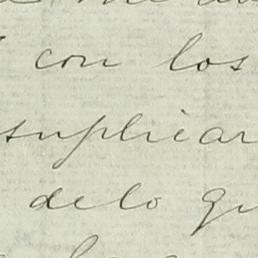 con los
suplicar
delo qu